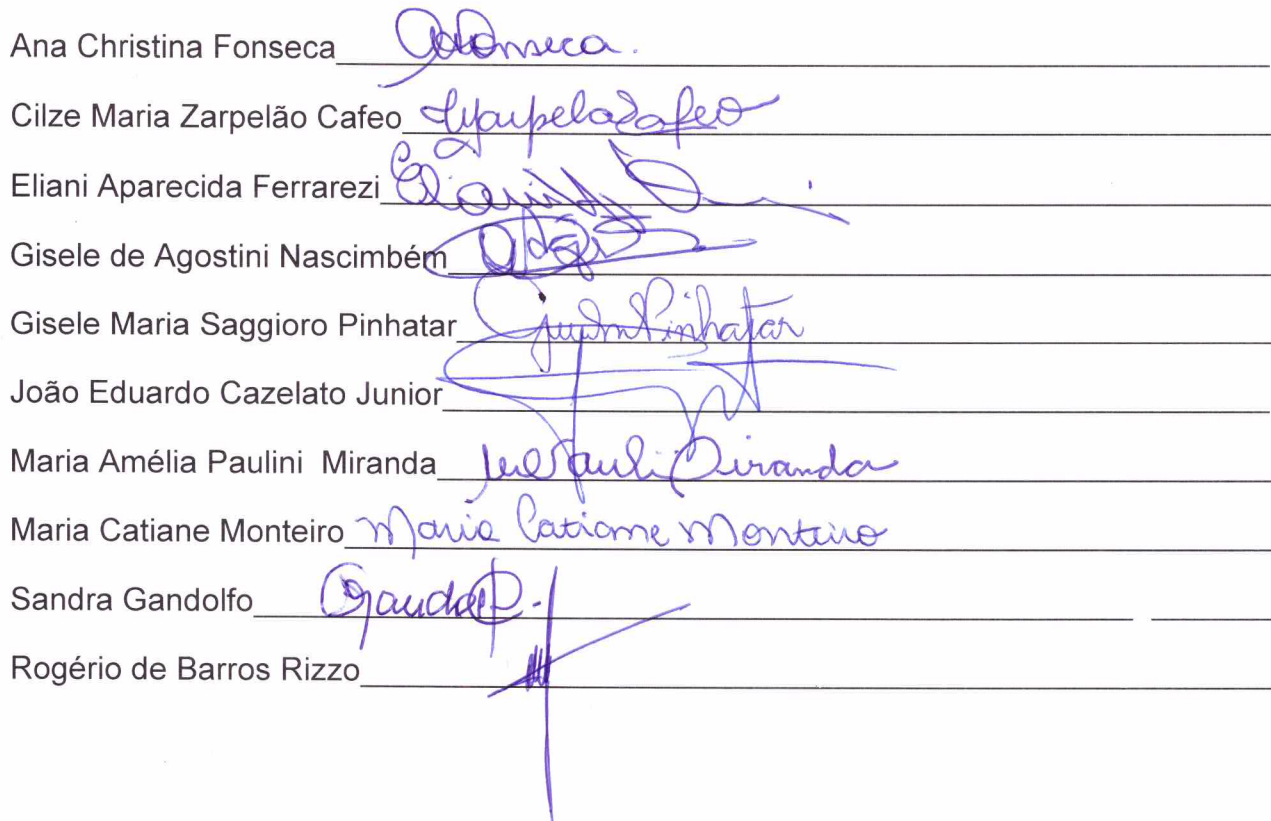 Ana Christina Fonseca Fonseca.
Cilze Maria Zarpelão Cafeo
Eliani Aparecida Ferrarezi
Gisele de Agostini Nascimbém
Gisele Maria Saggioro Pinhatar Pinhatar
João Eduardo Cazelato Junior
Maria Amélia Paulini Miranda Miranda
Maria Catiane Monteiro Maria Catiane Monteiro
Sandra Gandolfo
Rogério de Barros Rizzo